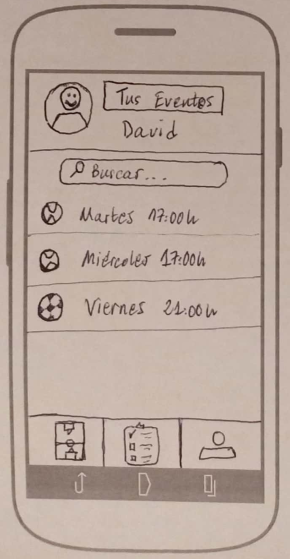 Tus Eventos
David
Buscar...
Martes 17:00h
Miércoles 17:00h
Viernes 21:00h